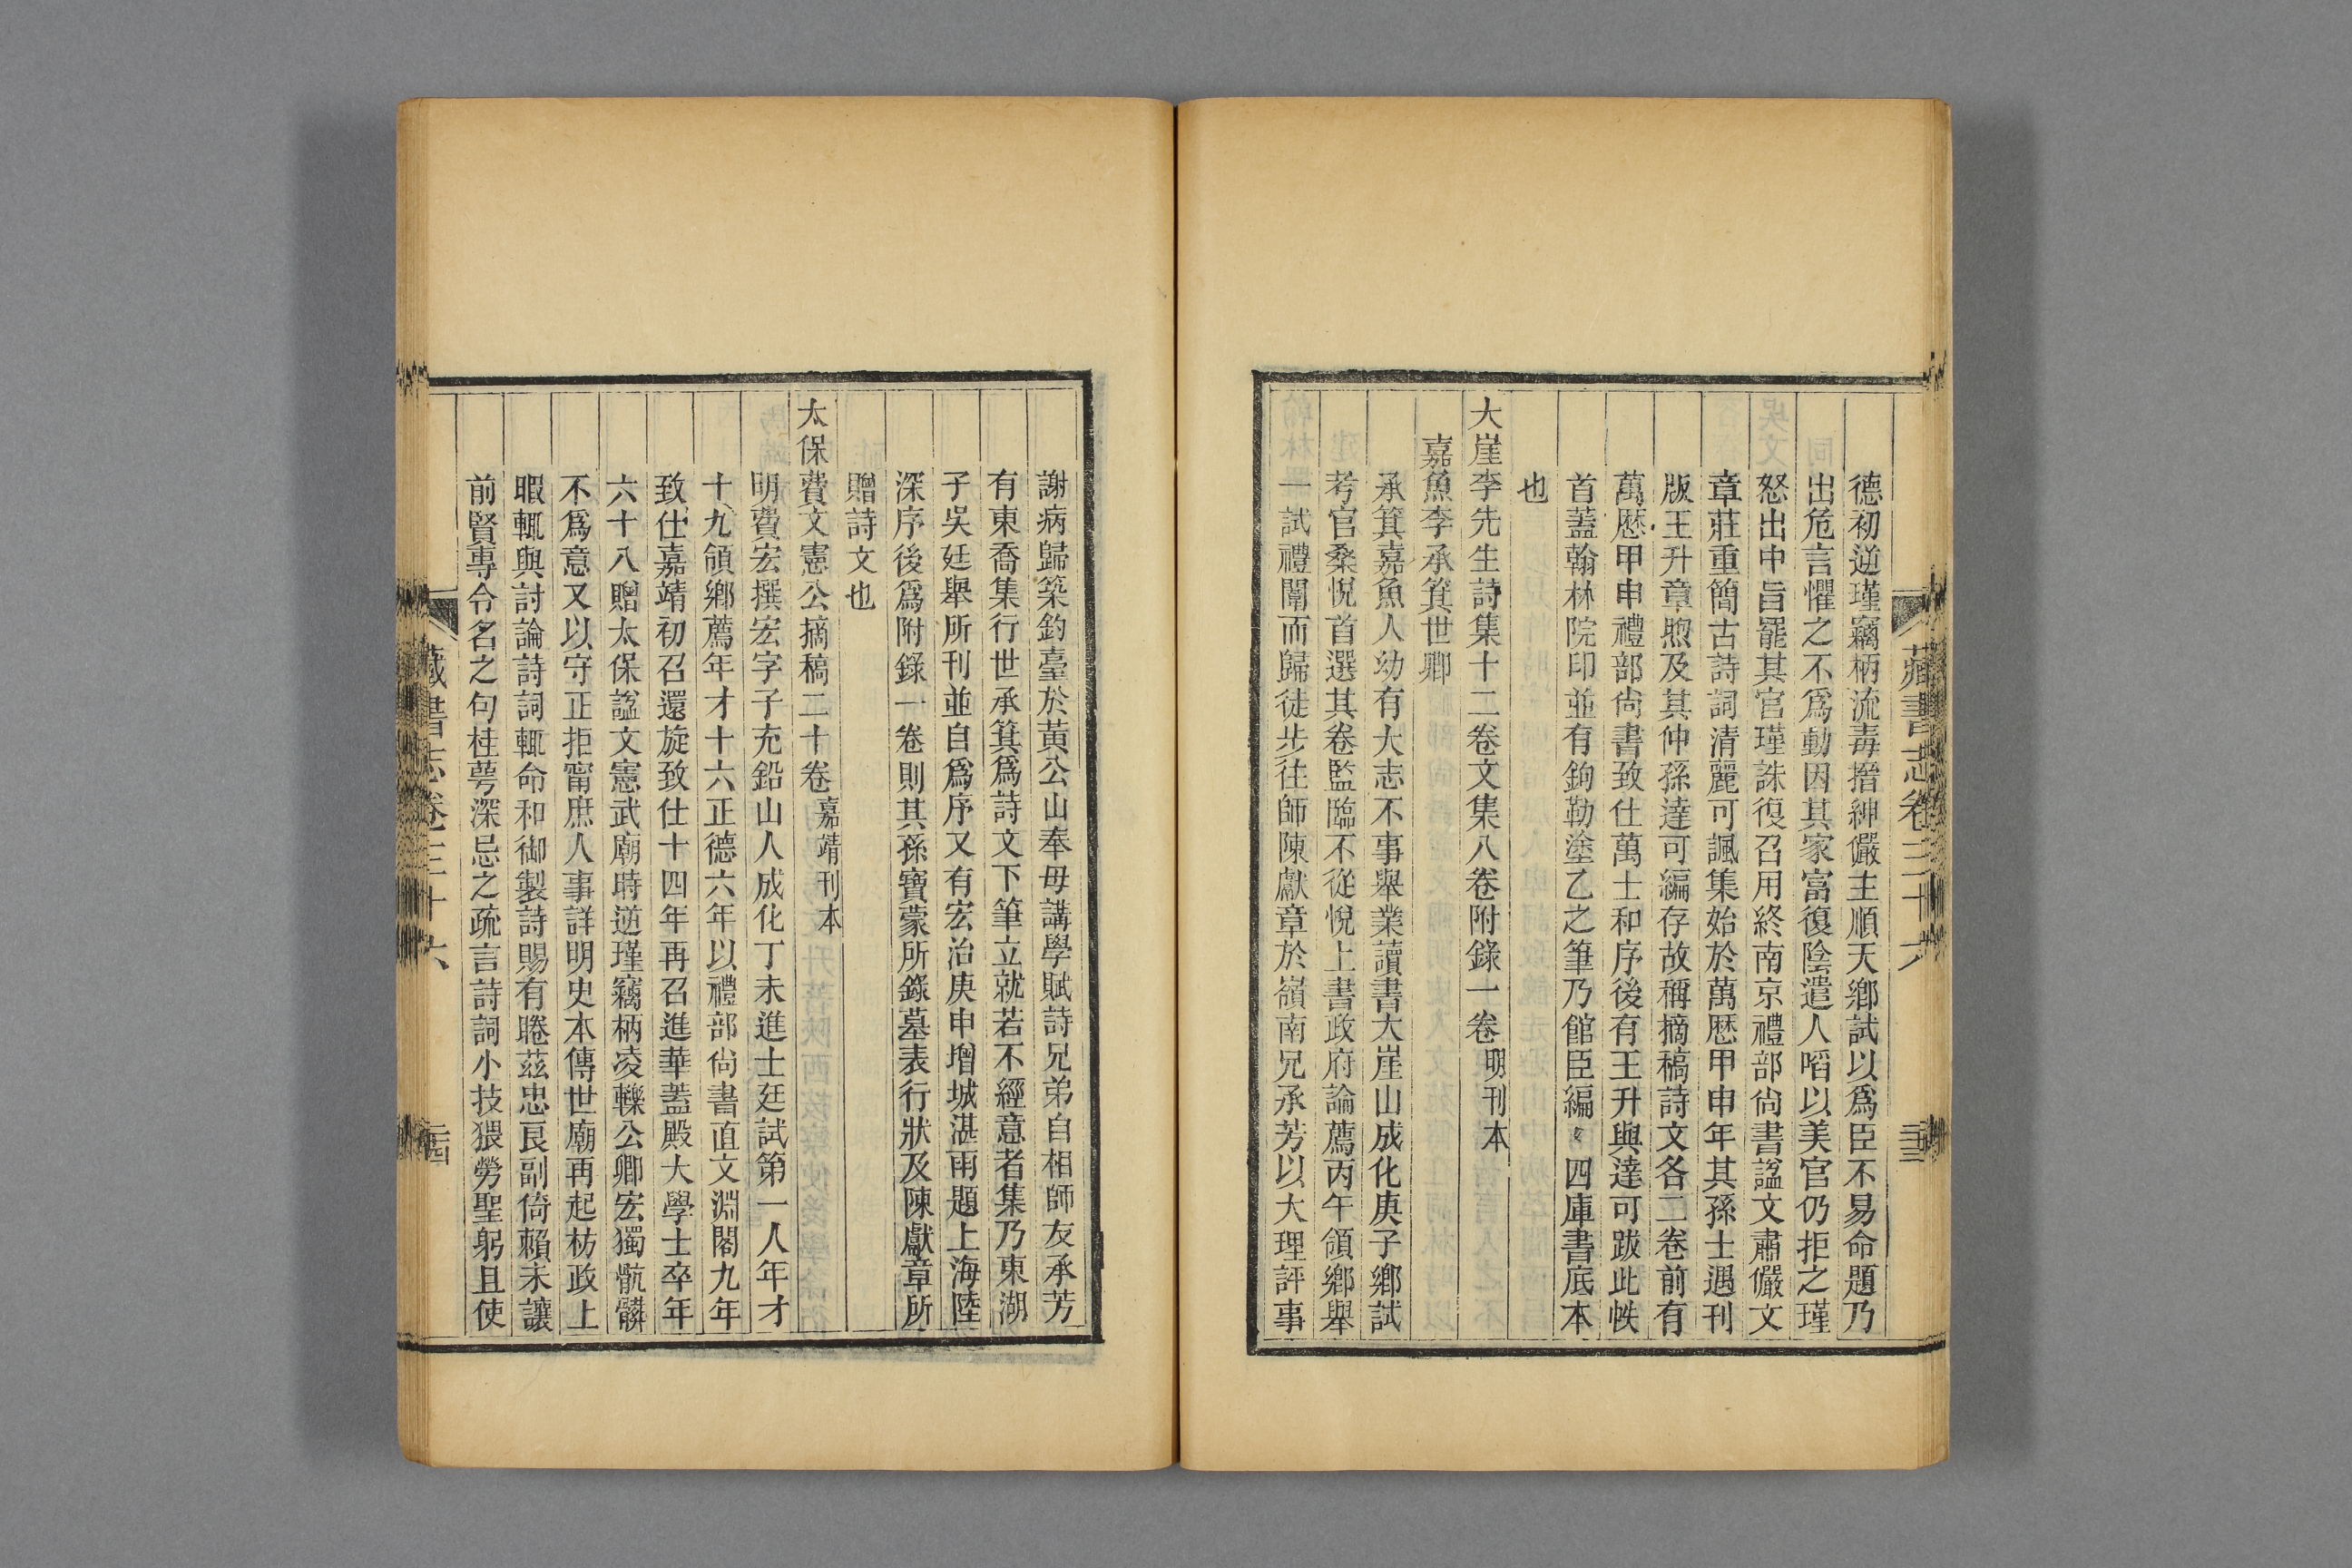 藏書志卷三十六
三三
德初逆瑾竊柄流毒搢紳儼主順天鄉試以爲臣不易命題乃
出危言懼之不爲動因其家富復陰遣人啗以美官仍拒之瑾
怒出中旨罷其官瑾誅復召用終南京禮部尚書諡文肅儼文
章莊重簡古詩詞清麗可諷集始於萬厯甲申年其孫士遇刊
版王升章煦及其仲孫達可編存故稱摘稿詩文各二卷前有
萬厯甲申禮部尚書致仕萬士和序後有王升與達可跋此帙
首蓋翰林院印並有鉤勒塗乙之筆乃館臣編 四庫書底本
也
大崖李先生詩集十二卷文集八卷附錄一卷明刊本
嘉魚李承箕世卿
承箕嘉魚人幼有大志不事舉業讀書大崖山成化庚子鄉試
考官桑悅首選其卷監臨不從悅上書政府論薦丙午領鄉舉
一試禮闈而歸徒步往師陳獻章於嶺南兄承芳以大理評事
謝病歸築釣臺於黃公山奉母講學賦詩兄弟自相師友承芳
有東喬集行世承箕爲詩文下筆立就若不經意者集乃東湖
子吳廷舉所刊並自爲序又有宏治庚申增城湛雨題上海陸
深序後爲附錄一卷則其孫寶蒙所錄墓表行狀及陳獻章所
贈詩文也
太保費文憲公摘稿二十卷嘉靖刊本
明費宏撰宏字子充鉛山人成化丁未進士廷試第一人年才
十九領鄉薦年才十六正德六年以禮部尚書直文淵閣九年
致仕嘉靖初召還旋致仕十四年再召進華蓋殿大學士卒年
六十八贈太保諡文憲武廟時逆瑾竊柄凌轢公卿宏獨骯髒
不爲意又以守正拒甯庶人事詳明史本傳世廟再起枋政上
暇輒與討論詩詞輒命和御製詩賜有睠茲忠良副倚賴未讓
前賢專令名之句桂萼深忌之疏言詩詞小技猥勞聖躬且使
藏書志卷三十六
三四